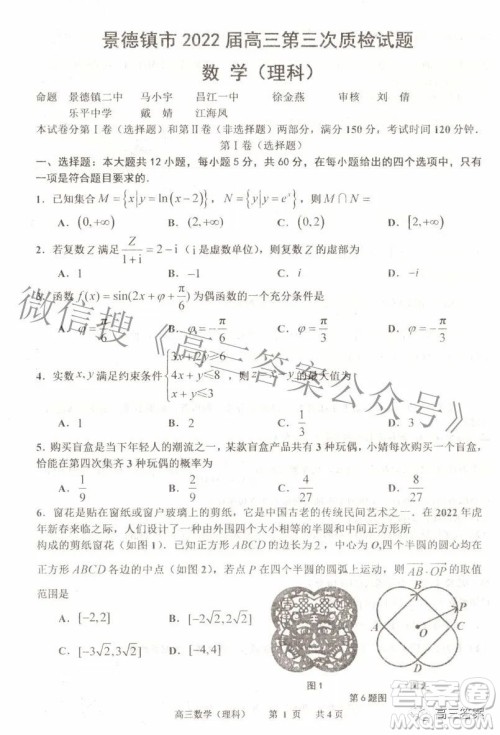 景德镇市 2022 届高三第三次质检试题
数 学（理科）
命题 景德镇二中 马小宇 昌江一中 徐金燕 审核 刘 倩
乐平中学 戴 婧 江海风
本试卷分第Ⅰ卷（选择题）和第Ⅱ卷（非选择题）两部分，满分 150 分，考试时间 120 分钟．
第Ⅰ卷（选择题）
一、选择题：本大题共 12 小题，每小题 5 分，共 60 分，在每小题给出的四个选项中，只有一
项是符合题目要求的．
1．已知集合 M={x|y=ln(x−2)}，N={y|y=e^x}，则 M∩N=
A．(0,+∞) B．(2,+∞) C．(0,2) D．[2,+∞)
2．若复数 Z 满足 Z/(1+i)=2−i（i 是虚数单位），则复数 Z 的虚部为
A．1 B．−1 C．i D．−i
3．函数 f(x)=sin(2x+φ+π/6) 为偶函数的一个充分条件是
A．φ=π/6 B．φ=−π/6 C．φ=π/3
4．实数 x,y 满足约束条件 { 3x+2y 4x+y≤8 x+y≤3 的最大值为
A．1 C．3
5．购买盲盒是当下年轻人的潮流之一，某款盲盒产品共有 3 种玩偶，小婧购买 4 个盲盒，
恰能在第四次集齐 3 种玩偶的概率为
A．1/9 B．2/9 C． D．
6．窗花是贴在窗纸或窗户玻璃上的剪纸，它是中国古老的传统民间艺术之一．在 2022 年虎
年新春来临之际，人们设计了一种由外围四个大小相等的半圆和中间正方形所
构成的剪纸窗花（如图 1）．已知正方形 ABCD 的边长为 2，中心为 O，四个半圆的圆心均为
正方形 ABCD 各边的中点（如图 2），若点 P 在四个半圆的圆弧上运动，则 AB·OP 的取值
范围是
A．[−2,2] B．[−2√2,2√2]
C．[−3√2,3√2] D．[−4,4]
A B C D O P
图 1
第 6 题图
高三数学（理科） 第 1 页 共 4 页
微信搜《高三答案公众号》
高三答案